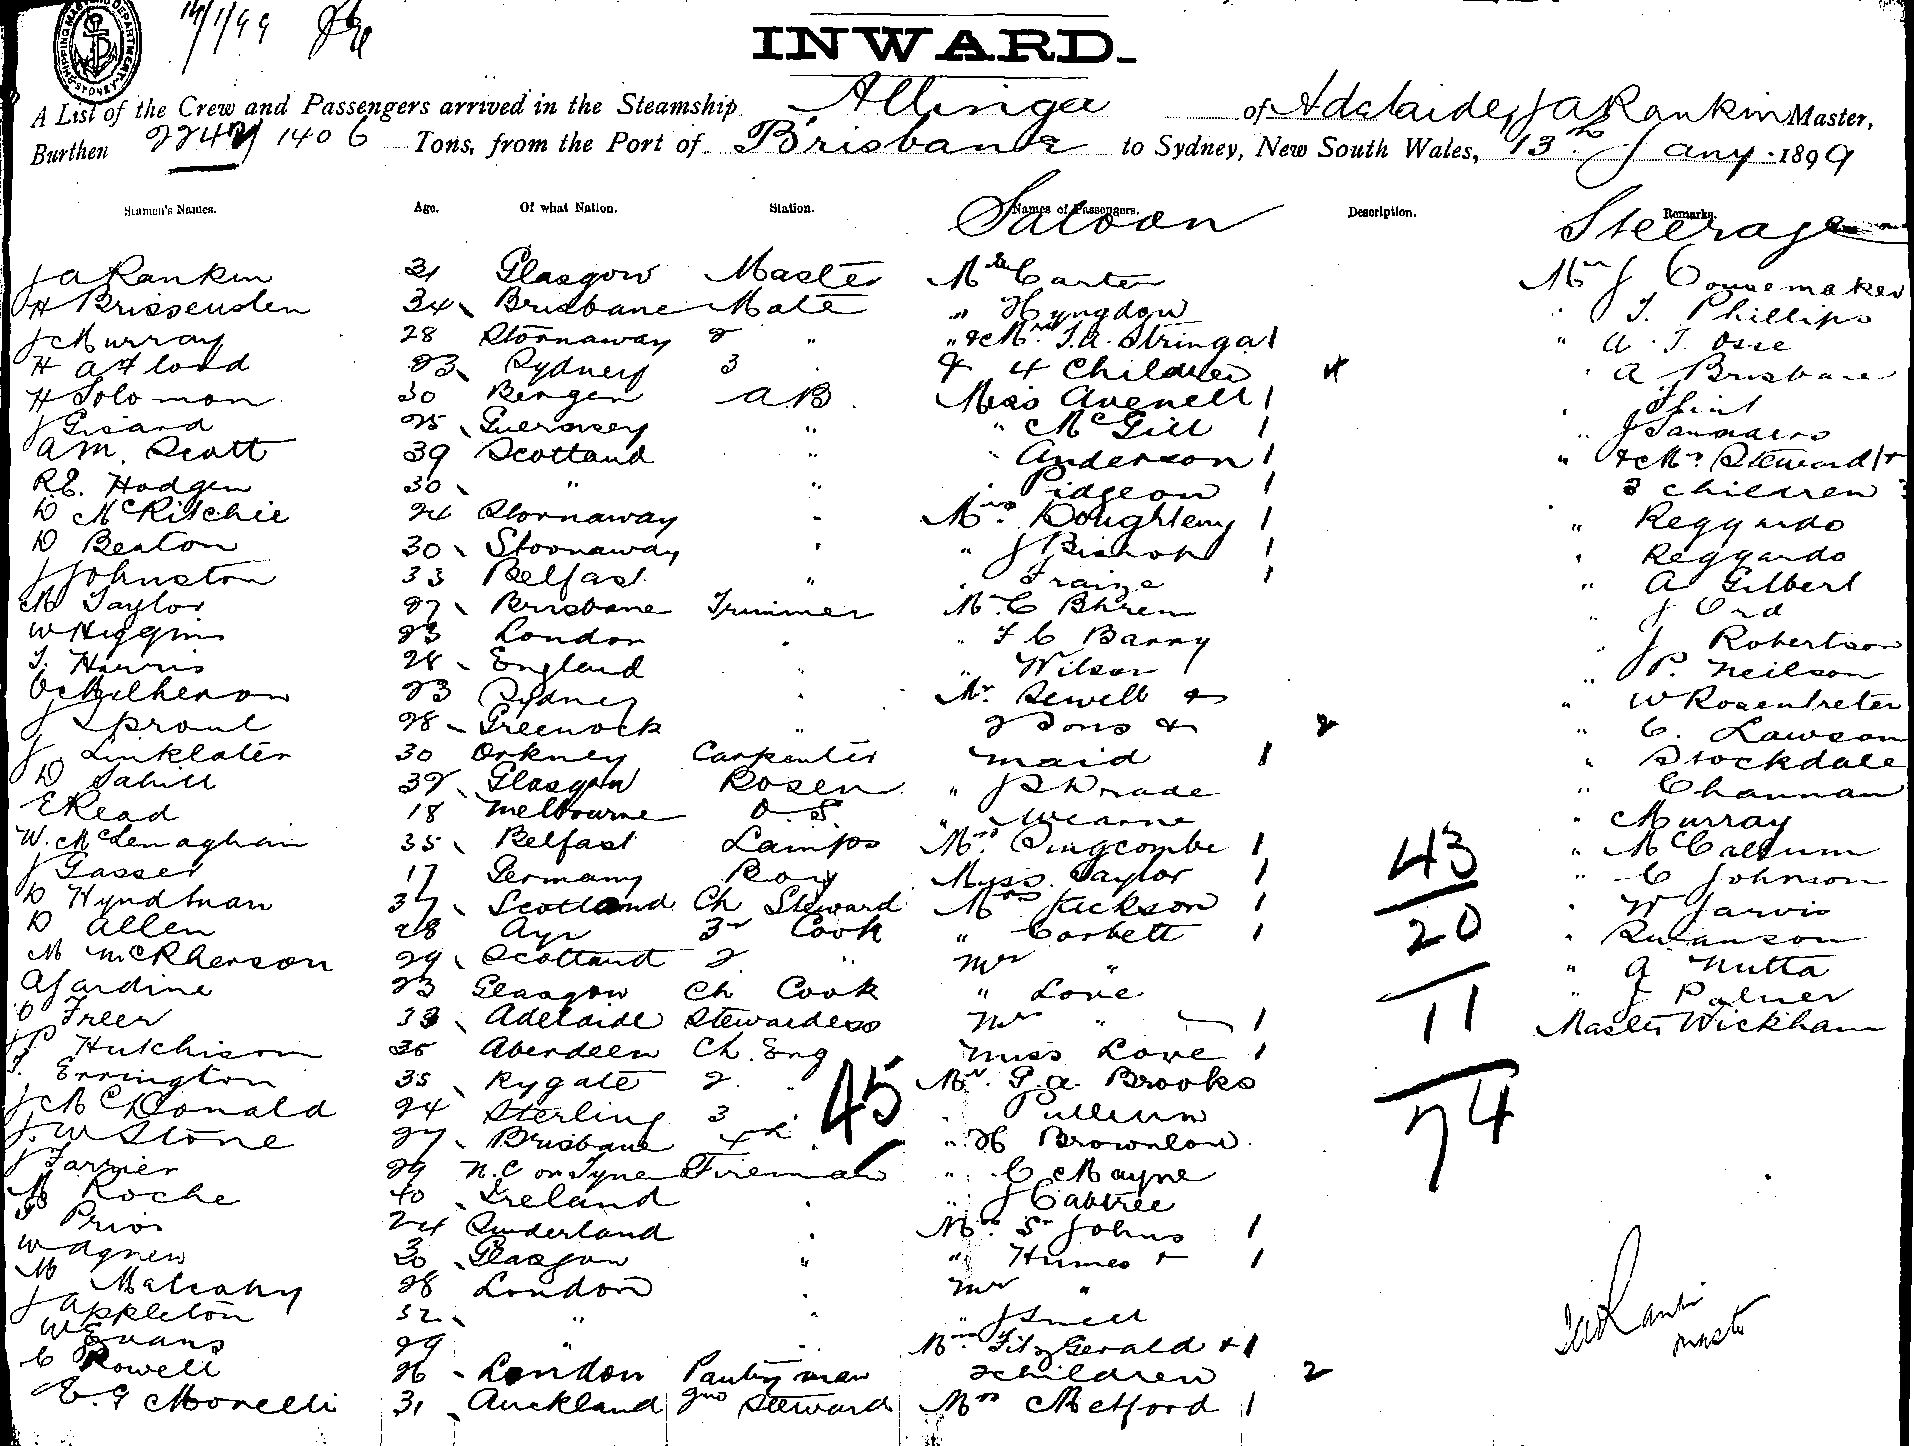 14/1/99
INWARD.
A List of the Crew and Passengers arrived in the Steamship Allinga of Adelaide, J A Rankin Master,
Burthen 1406 Tons, from the Port of Brisbane to Sydney, New South Wales, 13th Jany. 1899
Seamen's Names. Age. Of what Nation. Station. Names of Passengers. Description. Remarks.
Saloon Steerage
J A Rankin 31 Glasgow Master Mr Carter Mr J
H Brissenden 34 Brisbane Mate " Hyngdon " T. Phillips
J McMurray 28 Stornaway 2 " " & Mrs T. A. Stringal " A. T.
H A Flood 23 Sydney 3 " & 4 Children 4 " A Brisbane
H Solomon 30 Bergen A B Miss Avenell 1 " J Flint
J Girard 25 Guernsey " " McGill 1 " J Saunders
A M. Scott 39 Scotland " " Anderson 1 " & Mrs Steward 1 +
R. E. Hodgen 30 " " " Pidgeon 1 3 children 3
D McRitchie 24 Stornaway " Mrs Doughteny 1 " Reggardo
D Beaton 30 Stornaway " " J Bishop 1 " Reggardo
J Johnston 33 Belfast " " Fraize 1 " A Gilbert
M Taylor 27 Brisbane Trimmer Mr C Bhrem " J Ord
W Higgins 23 London " " F C Barry " J Robertson
T. Harris 28 England " " Wilson " P. Neilson
23 Sydney " Mr Sewell & " W Rosentreter
J Sproul 28 Greenock " 2 Sons & 2 " C. Lawson
J Linklater 30 Orkney Carpenter maid 1 " Stockdale
D Cahill 39 Glasgow Bosen " J S Wade " Channan
E Read 18 Melbourne O. S. " Wearne " Murray
W. McLenaghan 35 Belfast Lamps Mrs Pingcombe 1 43 " McCallum
J Gasser 17 Germany Boy Miss Taylor 1 " C Johnson
D Hyndman 37 Scotland Ch Steward Mrs Jackson 1 20 " W Jarvis
D Allen 28 Ayr 3rd Cook " Corbett 1 " Swanson
M McPherson 29 Scotland 2 " Mr " " A Nutta
A Jardine 23 Glasgow Ch Cook " Love 11 " J Palmer
C Freer 33 Adelaide Stewardess Mrs " 1 Master Wickham
J P Hutchison 35 Aberdeen Ch. Eng Miss Love 1
T. Errington 35 Rygate 2 " 45 Mr. G. A. Brooks 74
J McDonald 24 Sterling 3 " " Pullenn
J. W Stone 27 Brisbane 4th " " H Brownlow
J Farmer 29 N. C on Tyne Fireman " C Mayne
M Roche 40 Ireland " " J Cabtree
P Prior 24 Sunderland " Mrs St Johns 1
W Agnew 30 Glasgow " " Humes + 1
M Malcahy 28 London " Mr "
J Appleton 32 " " " J Snell
W E Evans 29 " " Mrs FitzGerald & 1
C Rowell 26 London Pantry man 2 children 2
E. J Morelli 31 Auckland 2nd Steward Mrs Metford 1
J A Rankin
master